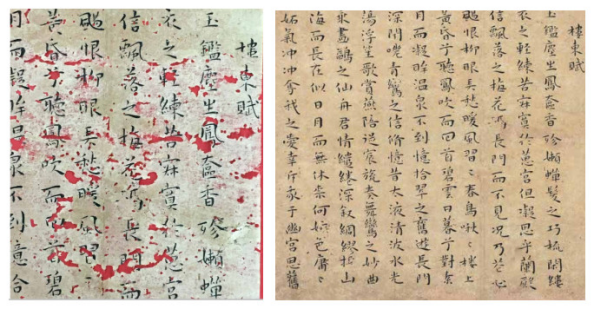 樓東賦
玉鑑塵生鳳奩香殄嬾蟬
衣之輕練苦寂寞於蕙宮
信飄落之梅花隔長門而
颺恨柳眼弄愁暖風習
黃昏兮聽鳳吹而回首碧
月而凝眸溫泉不到憶拾
樓東賦
玉鑑塵生鳳奩香殄嬾蟬髩之巧梳閑縷
衣之輕練苦寂寞於蕙宮但凝思乎蘭殿
信飄落之梅花隔長門而不見況乃花心
颺恨柳眼弄愁暖風習〻春鳥啾〻樓上
黃昏兮聽鳳吹而回首碧雲日暮兮對素
月而凝眸溫泉不到憶拾翠之舊遊長門
深閉嗟青鸞之信脩憶昔太液清波水光
蕩浮笙歌賞燕陪從宸旒奏舞鸞之妙曲
乘畫鷁之仙舟君情繾綣深叙綢繆誓山
海而長在似日月而無休柰何嫉色庸〻
妬氣沖沖奪我之愛幸斥我于幽宮思舊